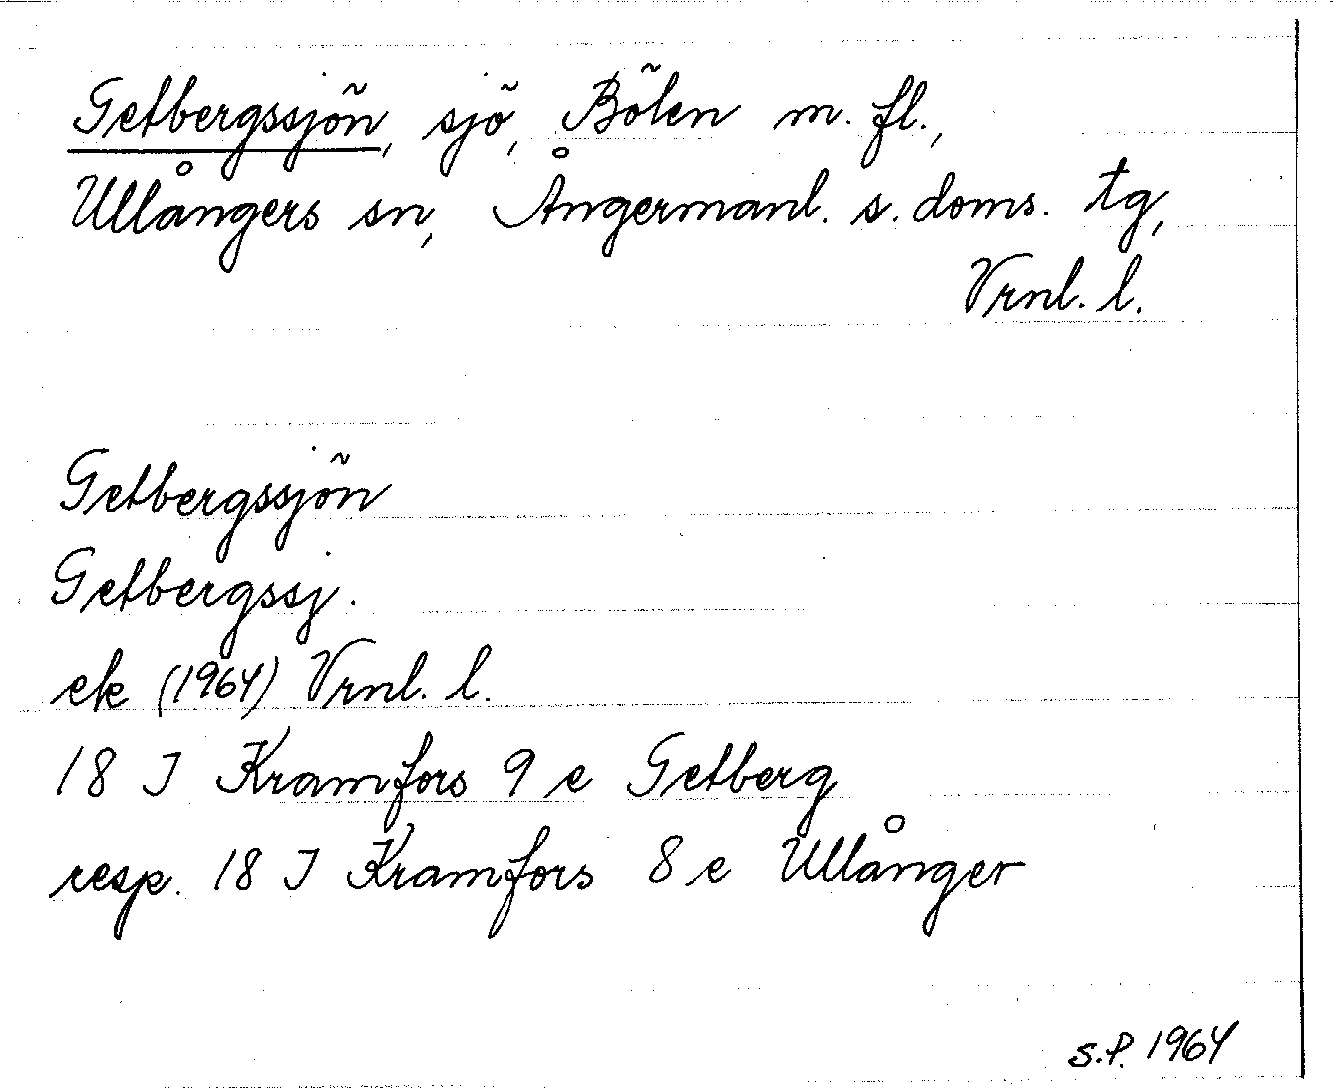 Getbergssjön, sjö, Bölen m. fl.,
Ullångers sn, Ångermanl. s. doms. tg,
Vrnl. l.
Getbergssjön
Getbergssj.
ek (1964) Vrnl. l.
18 J Kramfors 9 e Getberg
resp. 18 J Kramfors 8 e Ullånger
S.P. 1964